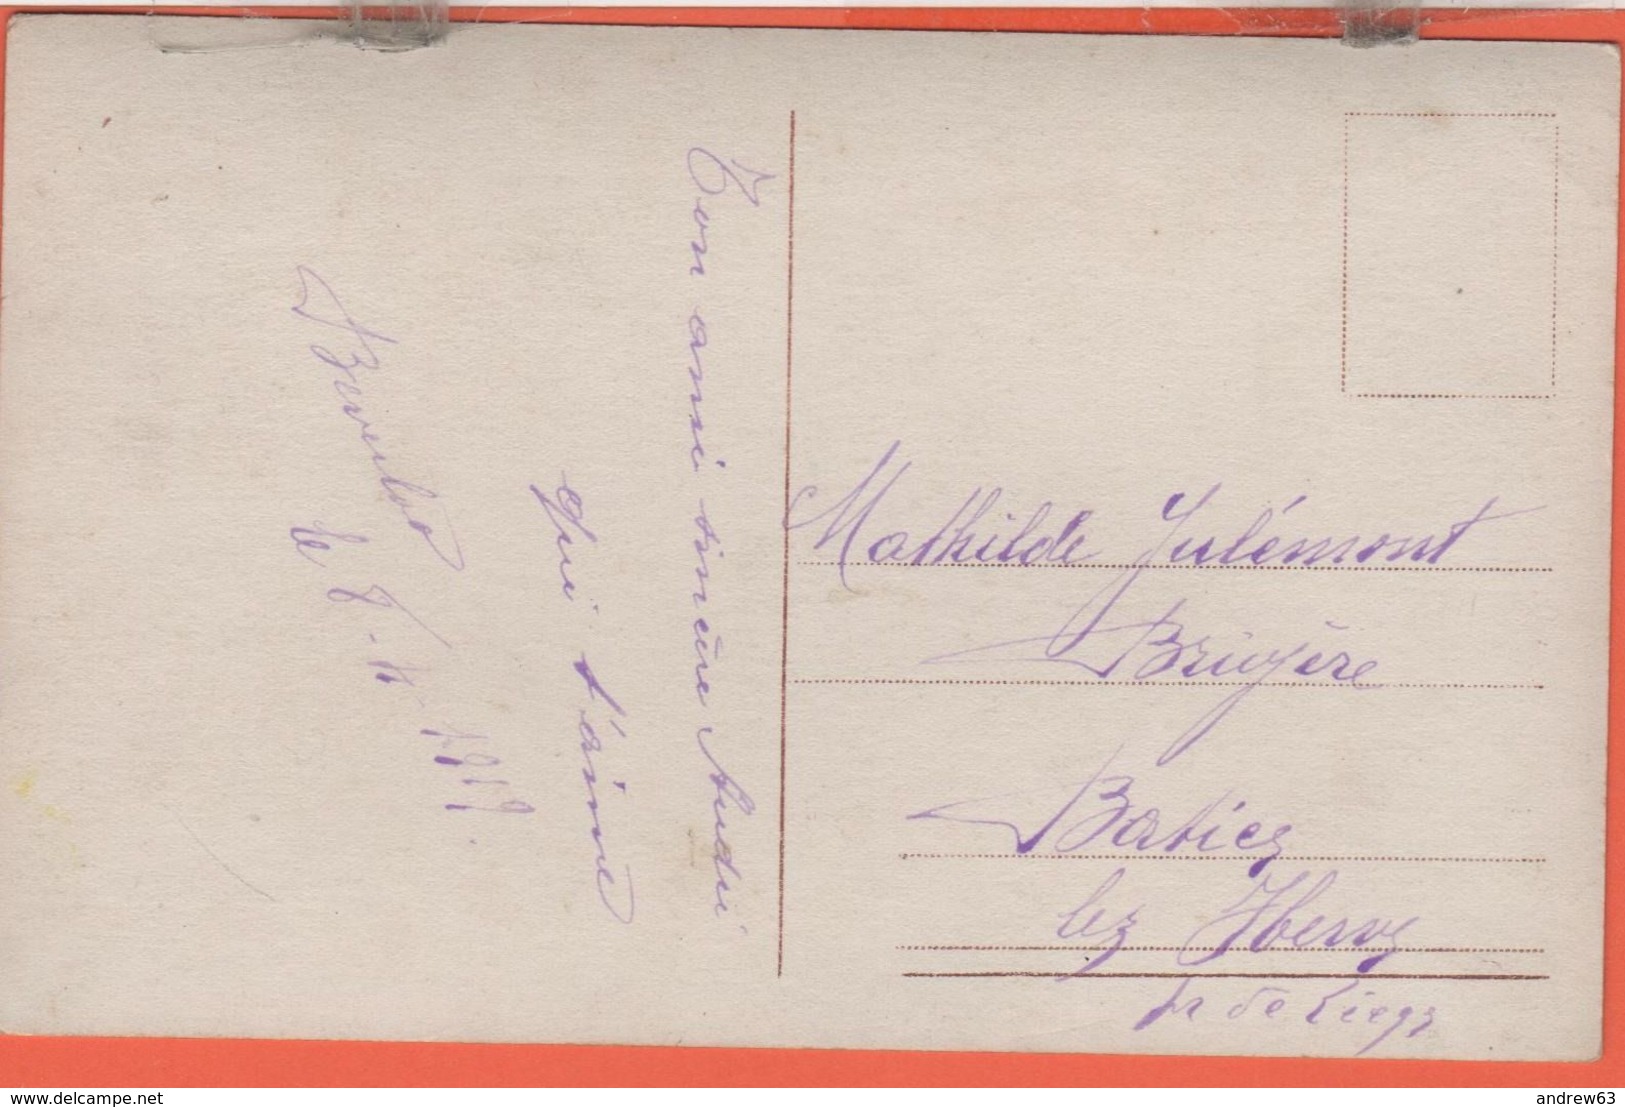 Ton ami sincère
qui t'aime
Beverloo
le 8.
Mathilde Julémont
Bruyère
Battice
lez Herve
Pr de Liege
www.delcampe.net
andrew63